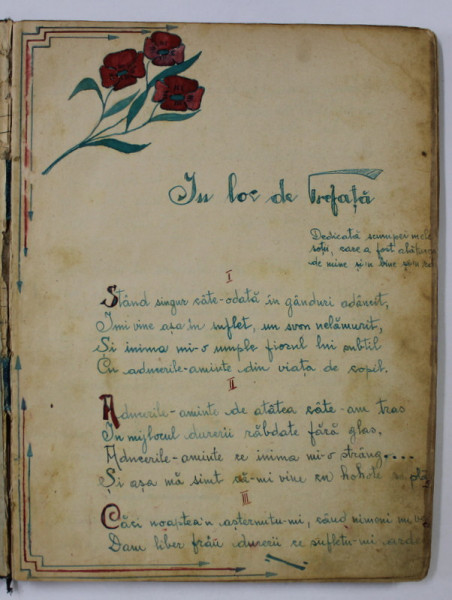 In loc de Prefață
Dedicată scumpei mele
soții, care a fost alături
de mine și-n bine și-n rău
I
Stând singur câte-odată în gânduri adâncit,
Îmi vine așa în suflet, un svon nelămurit,
Și inima mi-o umple fiorul lui subtil
Cu aducerile-aminte din viața de copil.
II
Aducerile-aminte de atâtea câte-am tras
În mijlocul durerii răbdate fără glas,
Aducerile-aminte ce inima mi-o strâng....
Și așa mă simt să-mi vine cu hohote să plâ
III
Căci noaptea'n așternutu-mi, când nimeni nu
Dam liber frâu durerii ce sufletu-mi arde